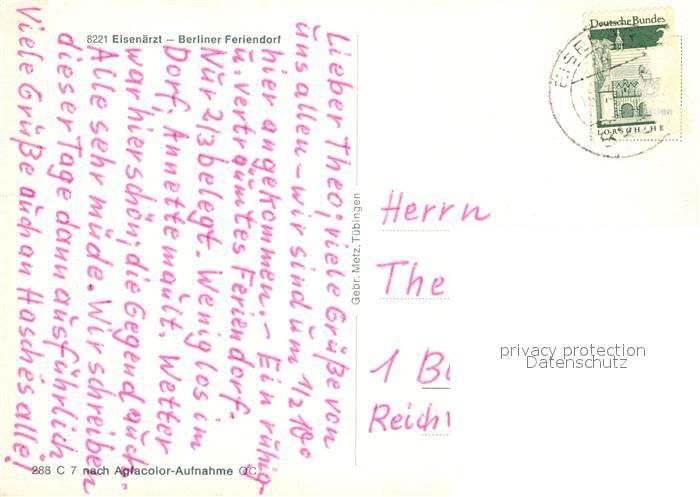 8221 Eisenärzt – Berliner Feriendorf
Lieber Theo; viele Grüße von
uns allen – wir sind um 1/2 10°°
hier angekommen. – Ein ruhig-
u. verträumtes Feriendorf.
Nur 2/3 belegt. Wenig los im
Dorf, Annette mault. Wetter
war hier schön; die Gegend auch.
Alle sehr müde. Wir schreiben
dieser Tage dann ausführlich
Viele Grüße auch an Haschés alle!
288 C 7 nach Agfacolor-Aufnahme OC
Gebr. Metz, Tübingen
Deutsche Bundes
LORSCH/HE
Herrn
The
1 B
Reich
privacy protection
Datenschutz